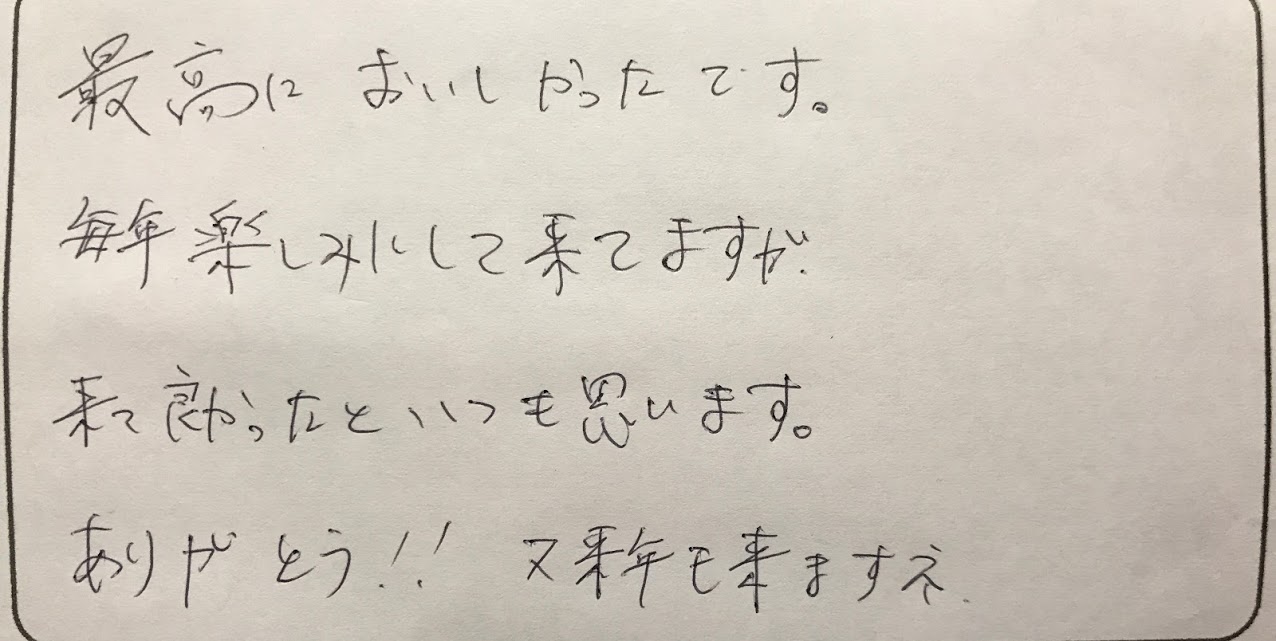 最高に おいしかったです。
毎年楽しみにして来てますが
来て良かったといつも思います。
ありがとう!! 又来年も来ますネ.